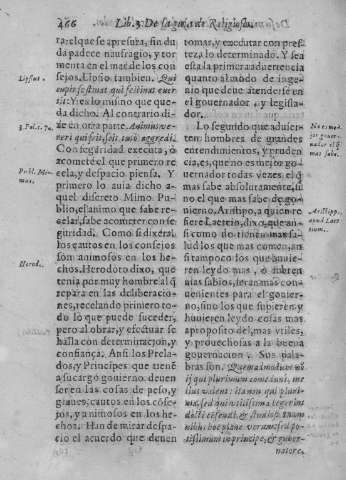 466 Lib. 3. De la guia de Religiosos.
ta: el que se apresura, sin du
da padece naufragio, y tor
menta en el mar de los con
sejos. Lipsio tambien. Qui
cupit festinat qui festinat evertit
Y es lo mismo que que-
da dicho. Al contrario di-
ze en otra parte. Animus ve
reri qui scit, scit tuto aggredi.
Con seguridad executa, o
acomete el que primero re
cela, y despacio piensa. Y
primero lo auia dicho a
quel discreto Mimo Pu
blio, el animo que sabe re
celar, sabe acometer con se
guridad. Como si dixera:
los cautos en los consejos
son animosos en los he-
chos. Herodoto dixo, que
tenia por muy hombre al q̃
repara en las deliberacio
nes, recelando primero to
do lo que puede suceder,
pero al obrar, y efectuar se
halla con determinacion, y
confiança. Ansi los Prela-
dos, y Principes que tienẽ
a su cargo gouierno, deuen
ser en las cosas de peso, y
graues, cautos en los cõse-
jos, y animosos en los he-
chos. Han de mirar despa-
cio el acuerdo que deuen
Lipsius.
Publ. Mi-
mus.
Herod.
tomar, y executar con pres
teza, lo determinado. Y sea
esta la primera aduertencia
quanto al modo de inge-
nio que deue atenderse en
el gouernador, y legisla-
dor.
Lo segundo que aduier-
ten hombres de grandes
entendimientos, y pruden
cia, es, que no es mejor go-
uernador todas vezes, el q̃
mas sabe absolutamente, si
no el que mas sabe de go-
uierno. Aristipo, a quien re
fiere Laercio, dixo, que an si
como no tienen mas sa-
lud los que mas comen, an
si tampoco los que huuie-
ren leydo mas, o sabren
mas sabios, seran mas con
uenientes para el gouier-
no, sino los que supieren y
huuieren leydo cosas mas
a proposito del, mas vtiles,
y prouechosas a la buena
gouernacion. Sus pala-
bras son. Quemadmodum nõ
ij qui plurimum comedunt, me
lius valent: ita non qui pluri-
ma, sed qui vtilissima legerint
docti censendi,
nibus: hoc plane verum
tissimum in principe, & guber-
natore.
No es me-
jor gouer-
nador el q̃
mas sabe.
Aristipp.
apud Laer
tium.